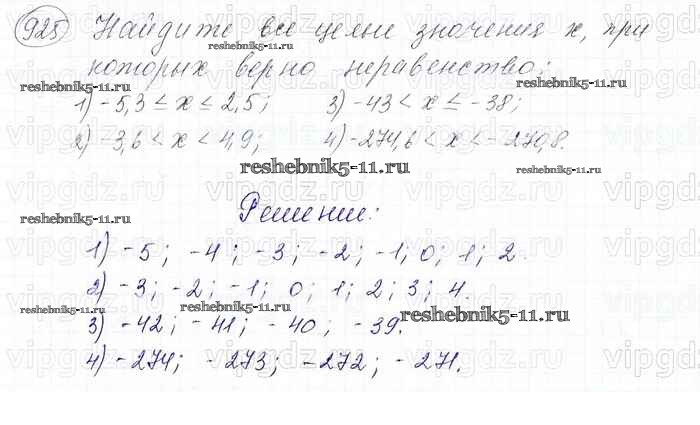 925 Найдите все целые значения х, при
reshebnik5-11.ru
которых верно неравенство:
reshebnik5-11.ru reshebnik5-11.ru
1) -5,3 ≤ х ≤ 2,5; 3) -43 < х ≤ -38;
2) -3,6 < х < 4,9; 4) -274,6 < х < -270,8.
reshebnik5-11.ru
vipgdz.ru vipgdz.ru vipgdz.ru vipgdz.ru
Решение:
reshebnik5-11.ru
1) -5; -4; -3; -2; -1; 0; 1; 2.
2) -3; -2; -1; 0; 1; 2; 3; 4.
reshebnik5-11.ru reshebnik5-11.ru reshebnik5-11.ru
3) -42; -41; -40; -39.
4) -274; -273; -272; -271.